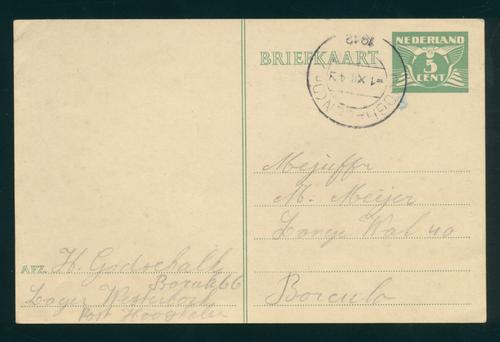 NEDERLAND
5
CENT
BRIEFKAART
1942
-1 XII 42
Mejuffr
M. Meijer
Lange Wal 40
Borculo
AFZ. H. Godschalk
Barak 66
Lager Westerbork
Post Hooghalen